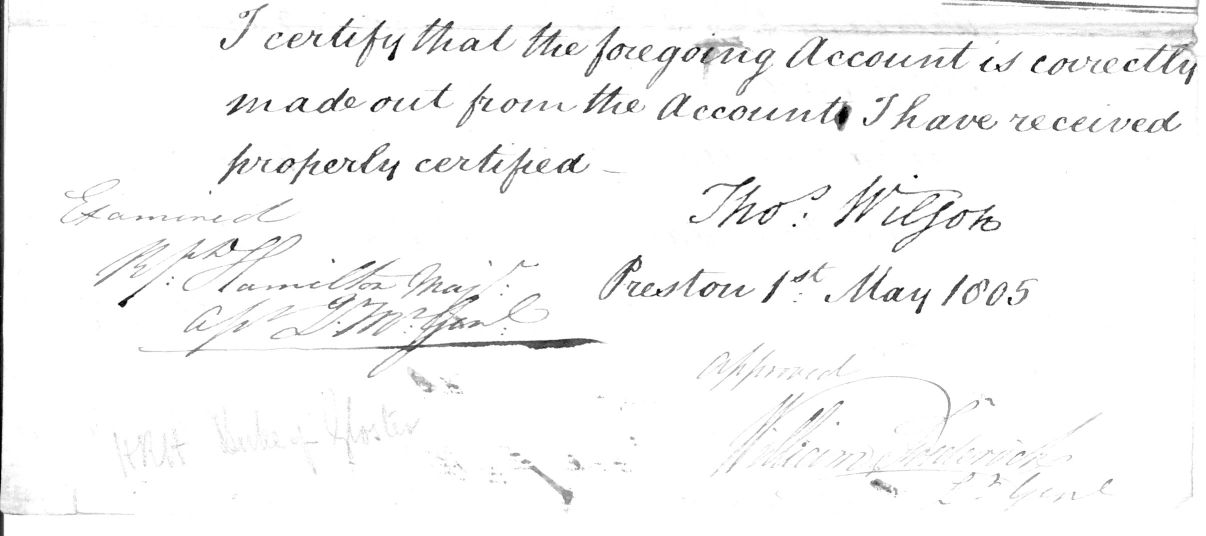 I certify that the foregoing Account is correctly
made out from the Account I have received
properly certified –
Thos. Wilson
Examined
Hamilton Majr.
Preston 1st. May 1805
Genl
approved
William Frederick
Lt Genl
HRH Duke of Gloster